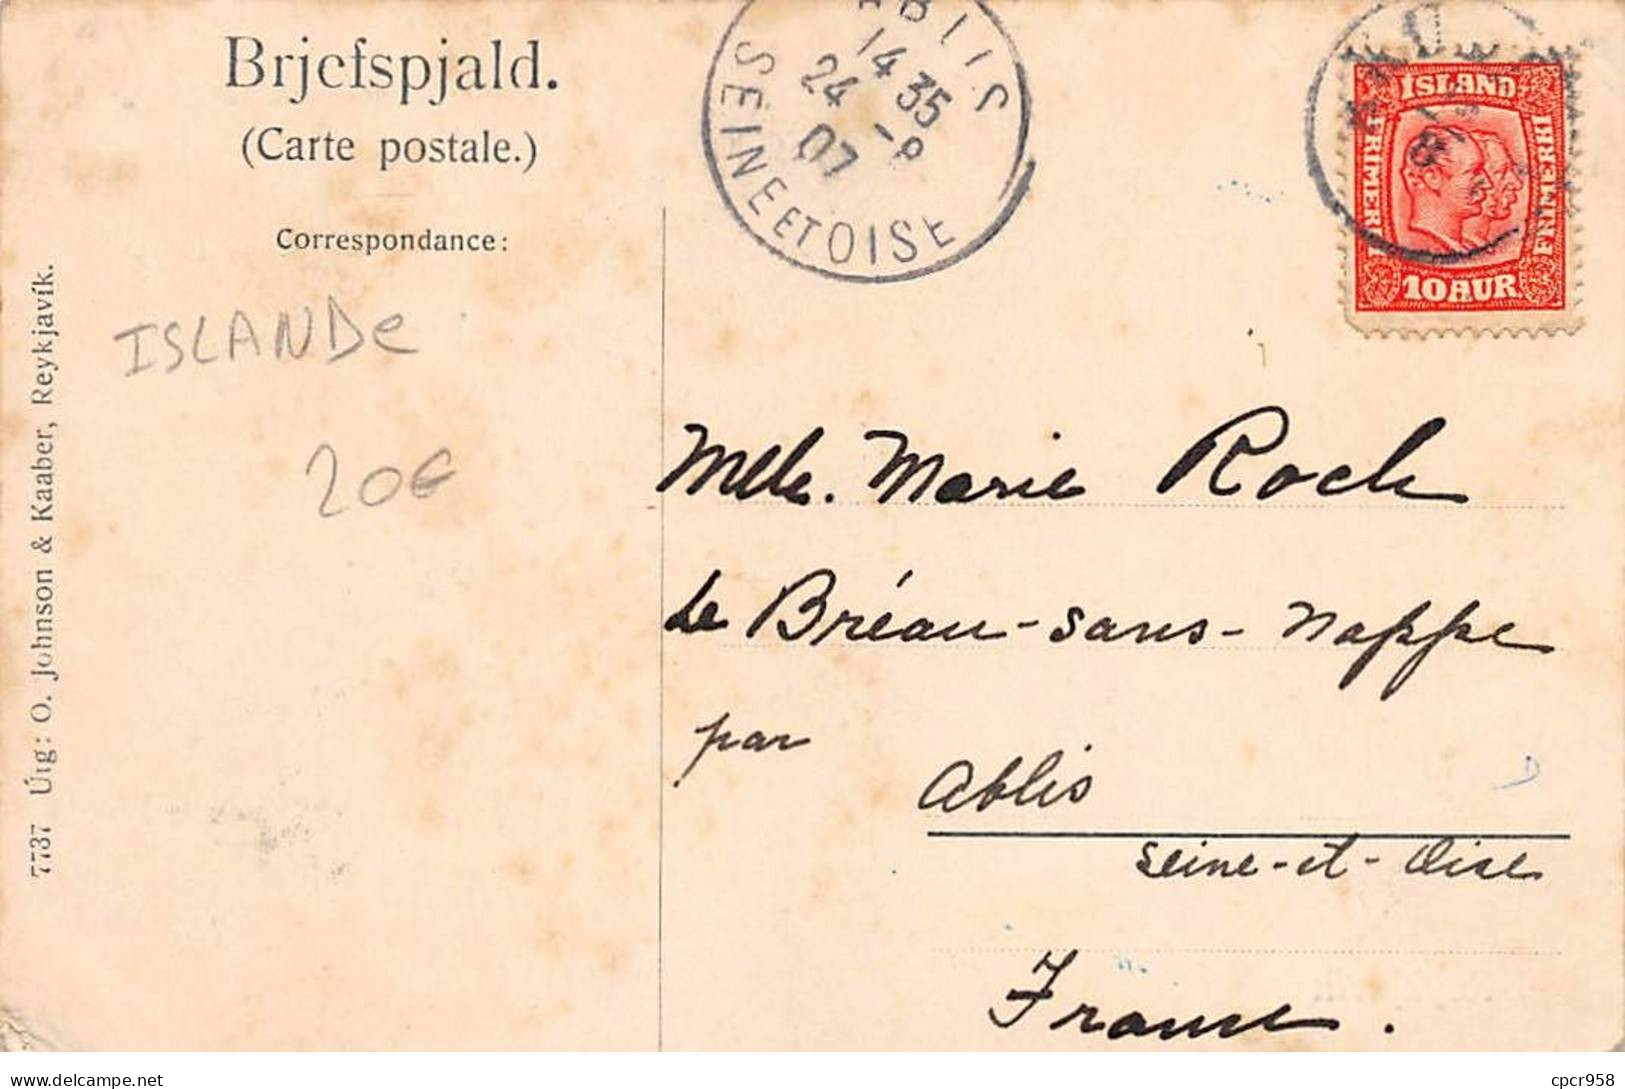 Brjefspjald.
(Carte postale.)
Correspondance:
ISLANDe
20€
7737 Útg: O. Johnson & Kaaber, Reykjavík.
ABLIS
14 35
24 -8
07
SEINE ET OISE
ISLAND
FRIMERKI
FRIMERKI
10 AUR
Melle. Marie Roch
Le Bréau-sans-Nappe
par
Ablis
Seine-et-Oise
France.
cpcr958